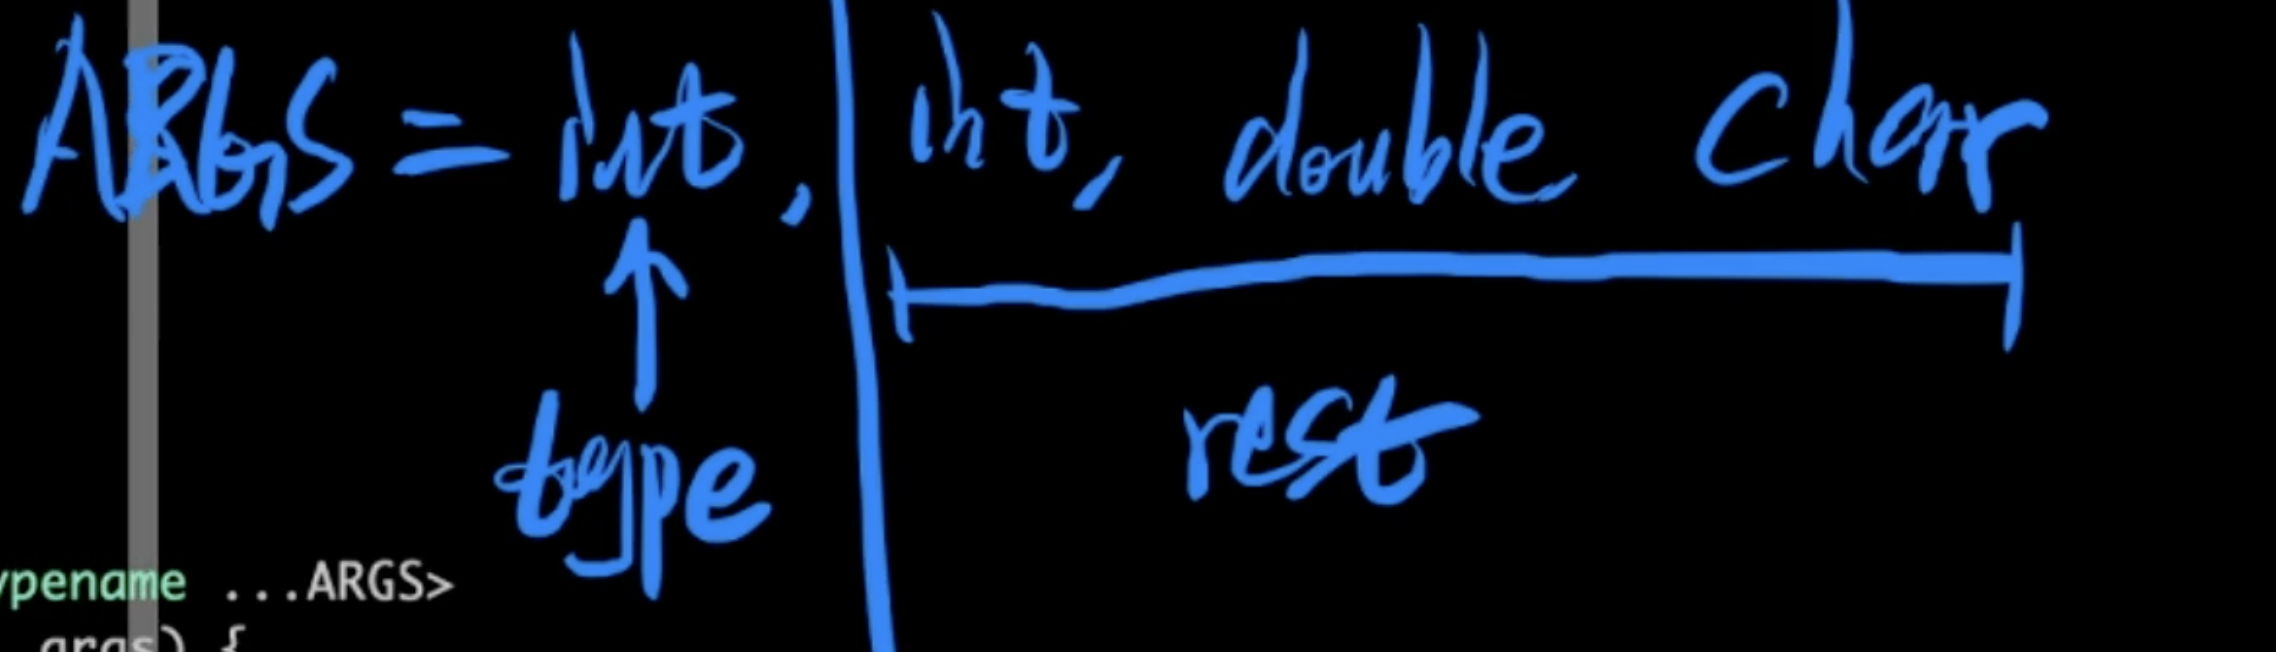 ARGS = int, int, double char
type rest
ypename ...ARGS>
args) {